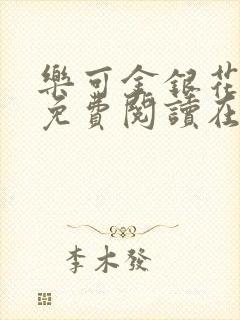 樂可金銀花
免費閱讀在
李木發